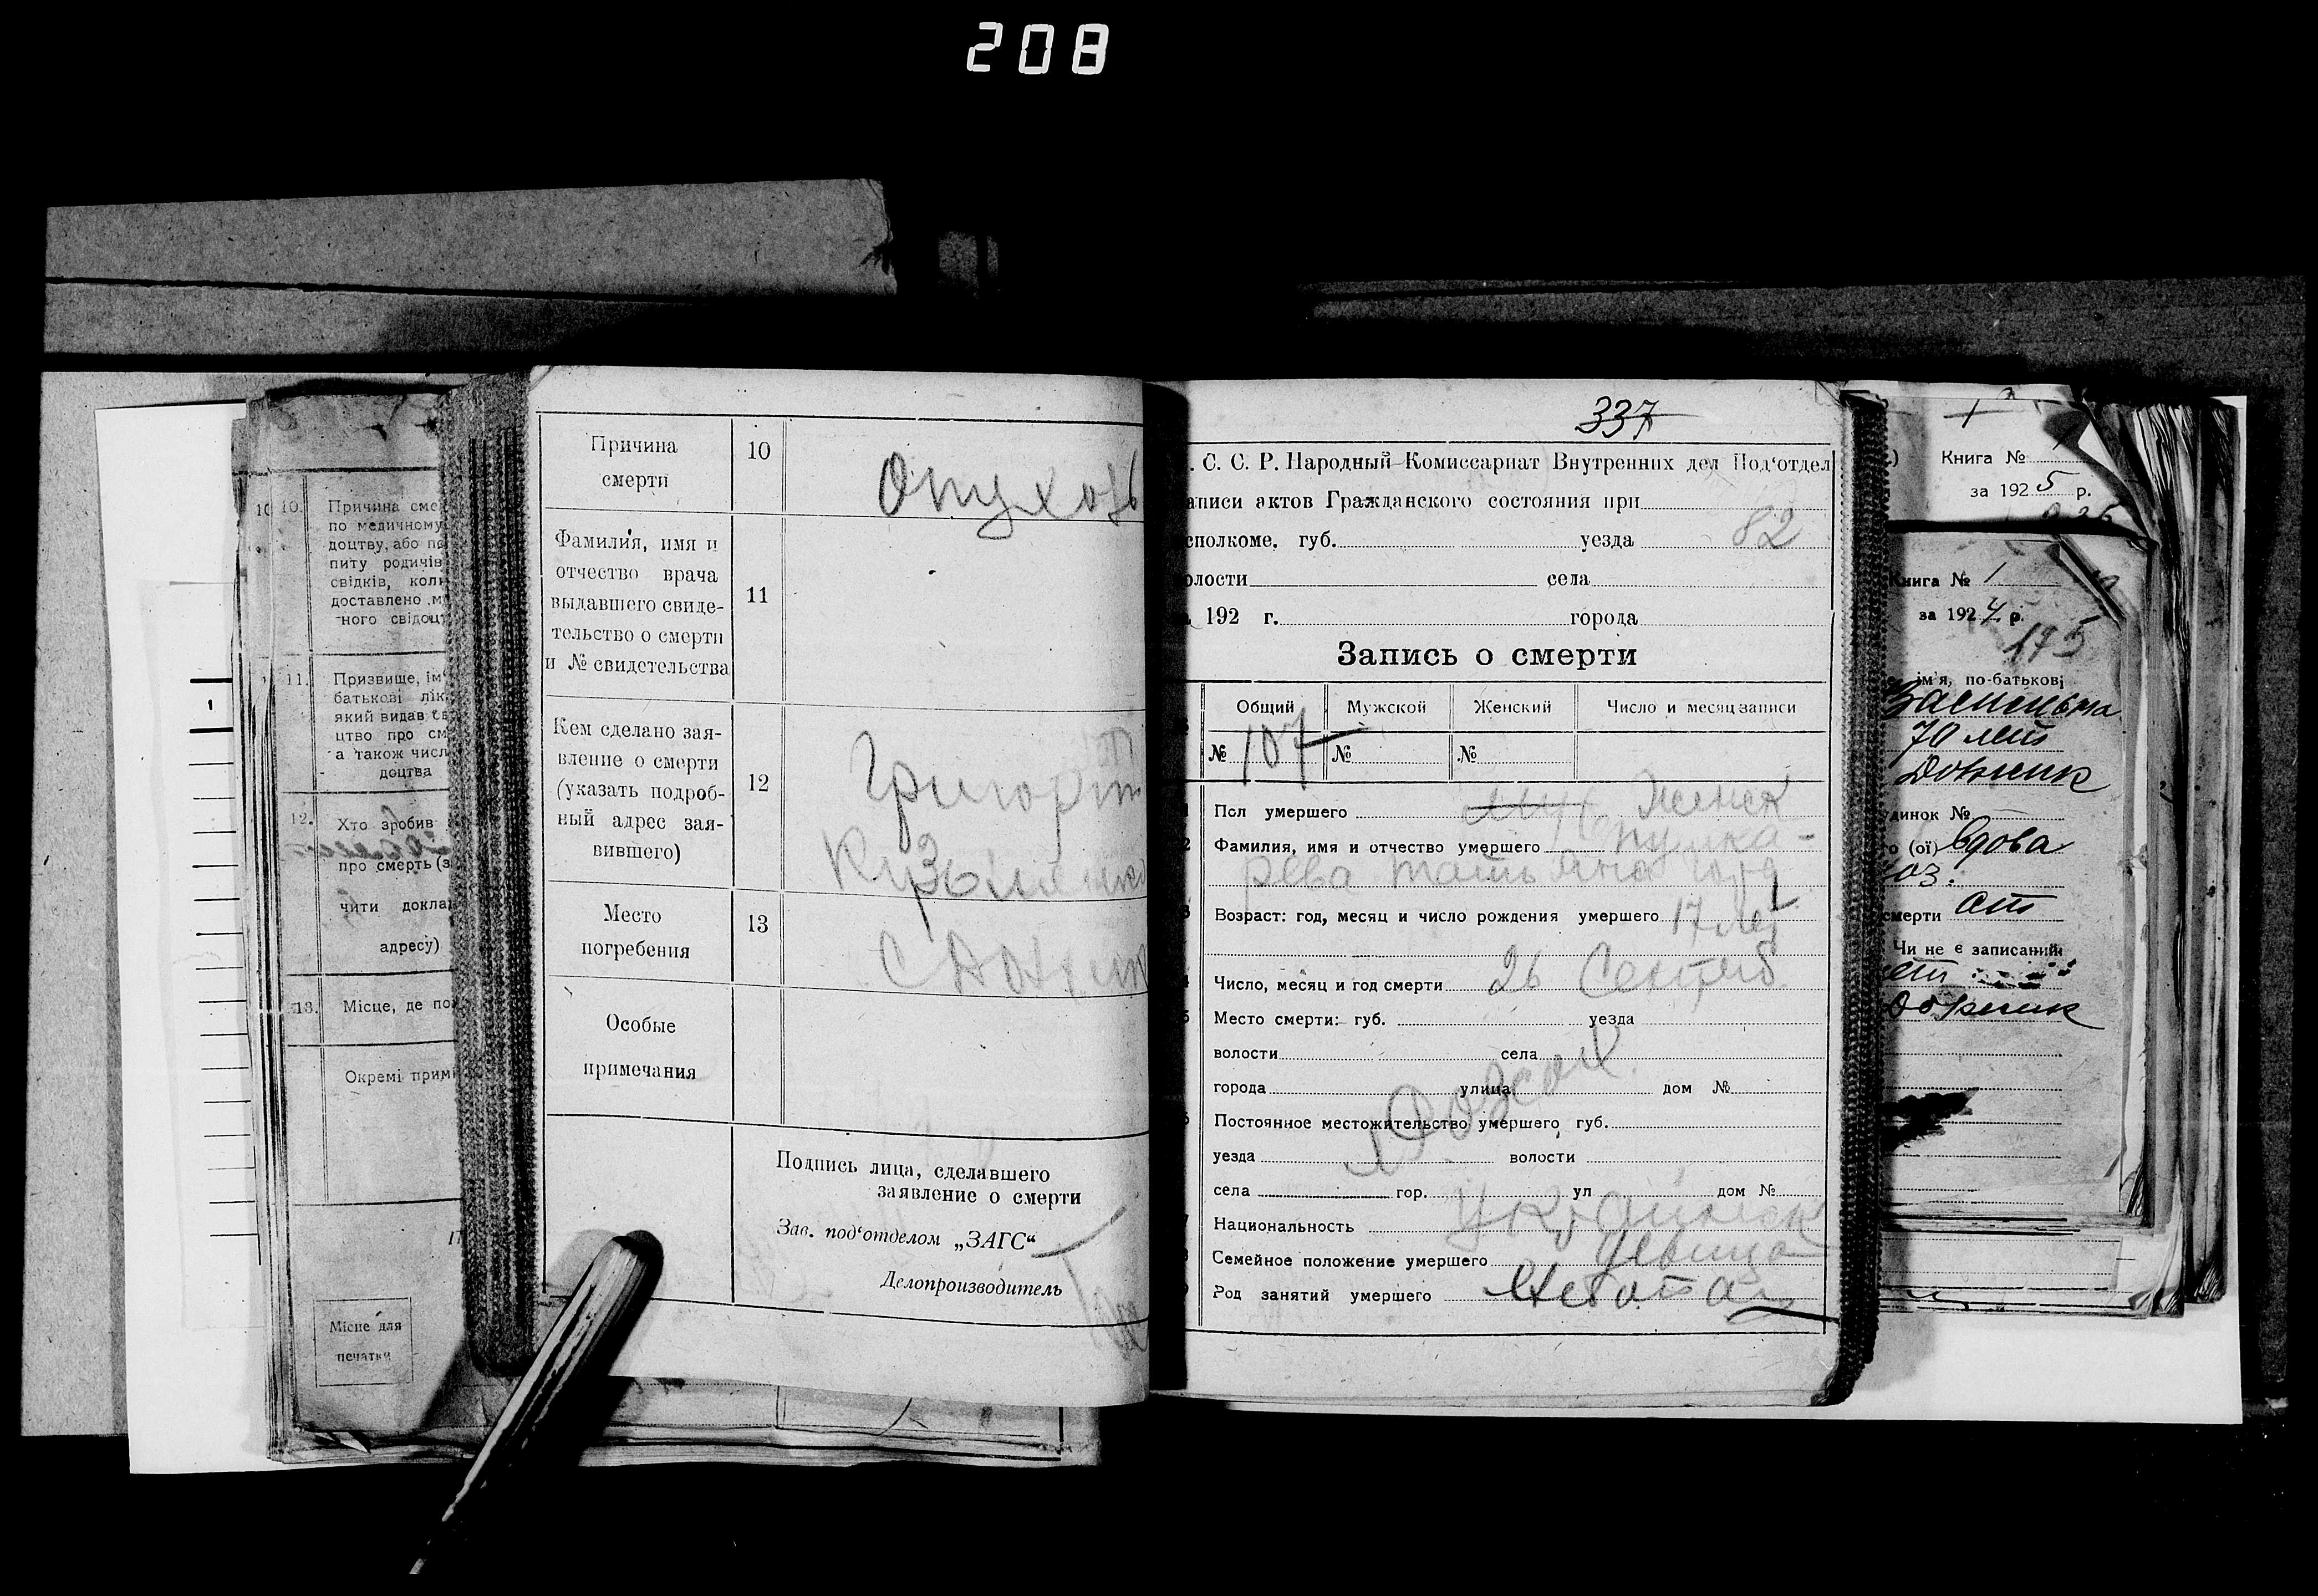 208
10.
Причина сме
по медичному
доцтву, або по
питу родичів
свідків, коли
доставлено м
ного свідоц
11.
Призвище, ім
батькові лік
який видав св
цтво про см
а також числ
доцтва
12.
Хто зробив
про смерть (з
чити докла
адресу)
13.
Місце, де по
Окремі прим
Місце для
печатки
Причина
смерти
10
Опухоль
Фамилия, имя и
отчество врача
выдавшего свиде-
тельство о смерти
и № свидетельства
11
Кем сделано зая-
вление о смерти
(указать подроб-
ный адрес зая-
вившего)
12
Григорий
Кузьменко
Место
погребения
13
С Должик
Особые
примечания
Подпись лица, сделавшего
заявление о смерти
Зав. под‘отделом „ЗАГС“
Делопроизводитель
337
. С. С. Р. Народный Комиссариат Внутренних дел Под‘отдел
аписи актов Гражданского состояния при
82
сполкоме, губ. уезда
олости села
192 г. города
Запись о смерти
Общий Мужской Женский Число и месяц записи
№ 107 № №
Пол умершего муж Женск
Фамилия, имя и отчество умершего пушка-
рева татьяна
Возраст: год, месяц и число рождения умершего 17 лет
Число, месяц и год смерти 26 Сентяб.
Место смерти: губ. уезда
волости села
города улица дом №
Постоянное местожительство умершего, губ.
уезда волости
села гор. ул дом №
Национальность Украинск
Семейное положение умершего девица
Род занятий умершего
Книга № 1
за 1925 р.
Книга № 1
за 1924 р.
175
ім‘я, по-батькові
70 лет
Должик
удинок №
о (ої) вдова
смерти
Чи не є записаний
Должик